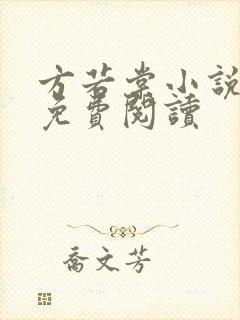 方若棠小説
免費閱讀
喬文芳